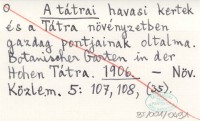 O A tátrai havasi kertek
és a Tátra növényzetben
gazdag pontjainak oltalma.
Botanischer Garten in der
Hohen Tátra. 1906. — Növ.
Közlem. 5: 107, 108, (35).